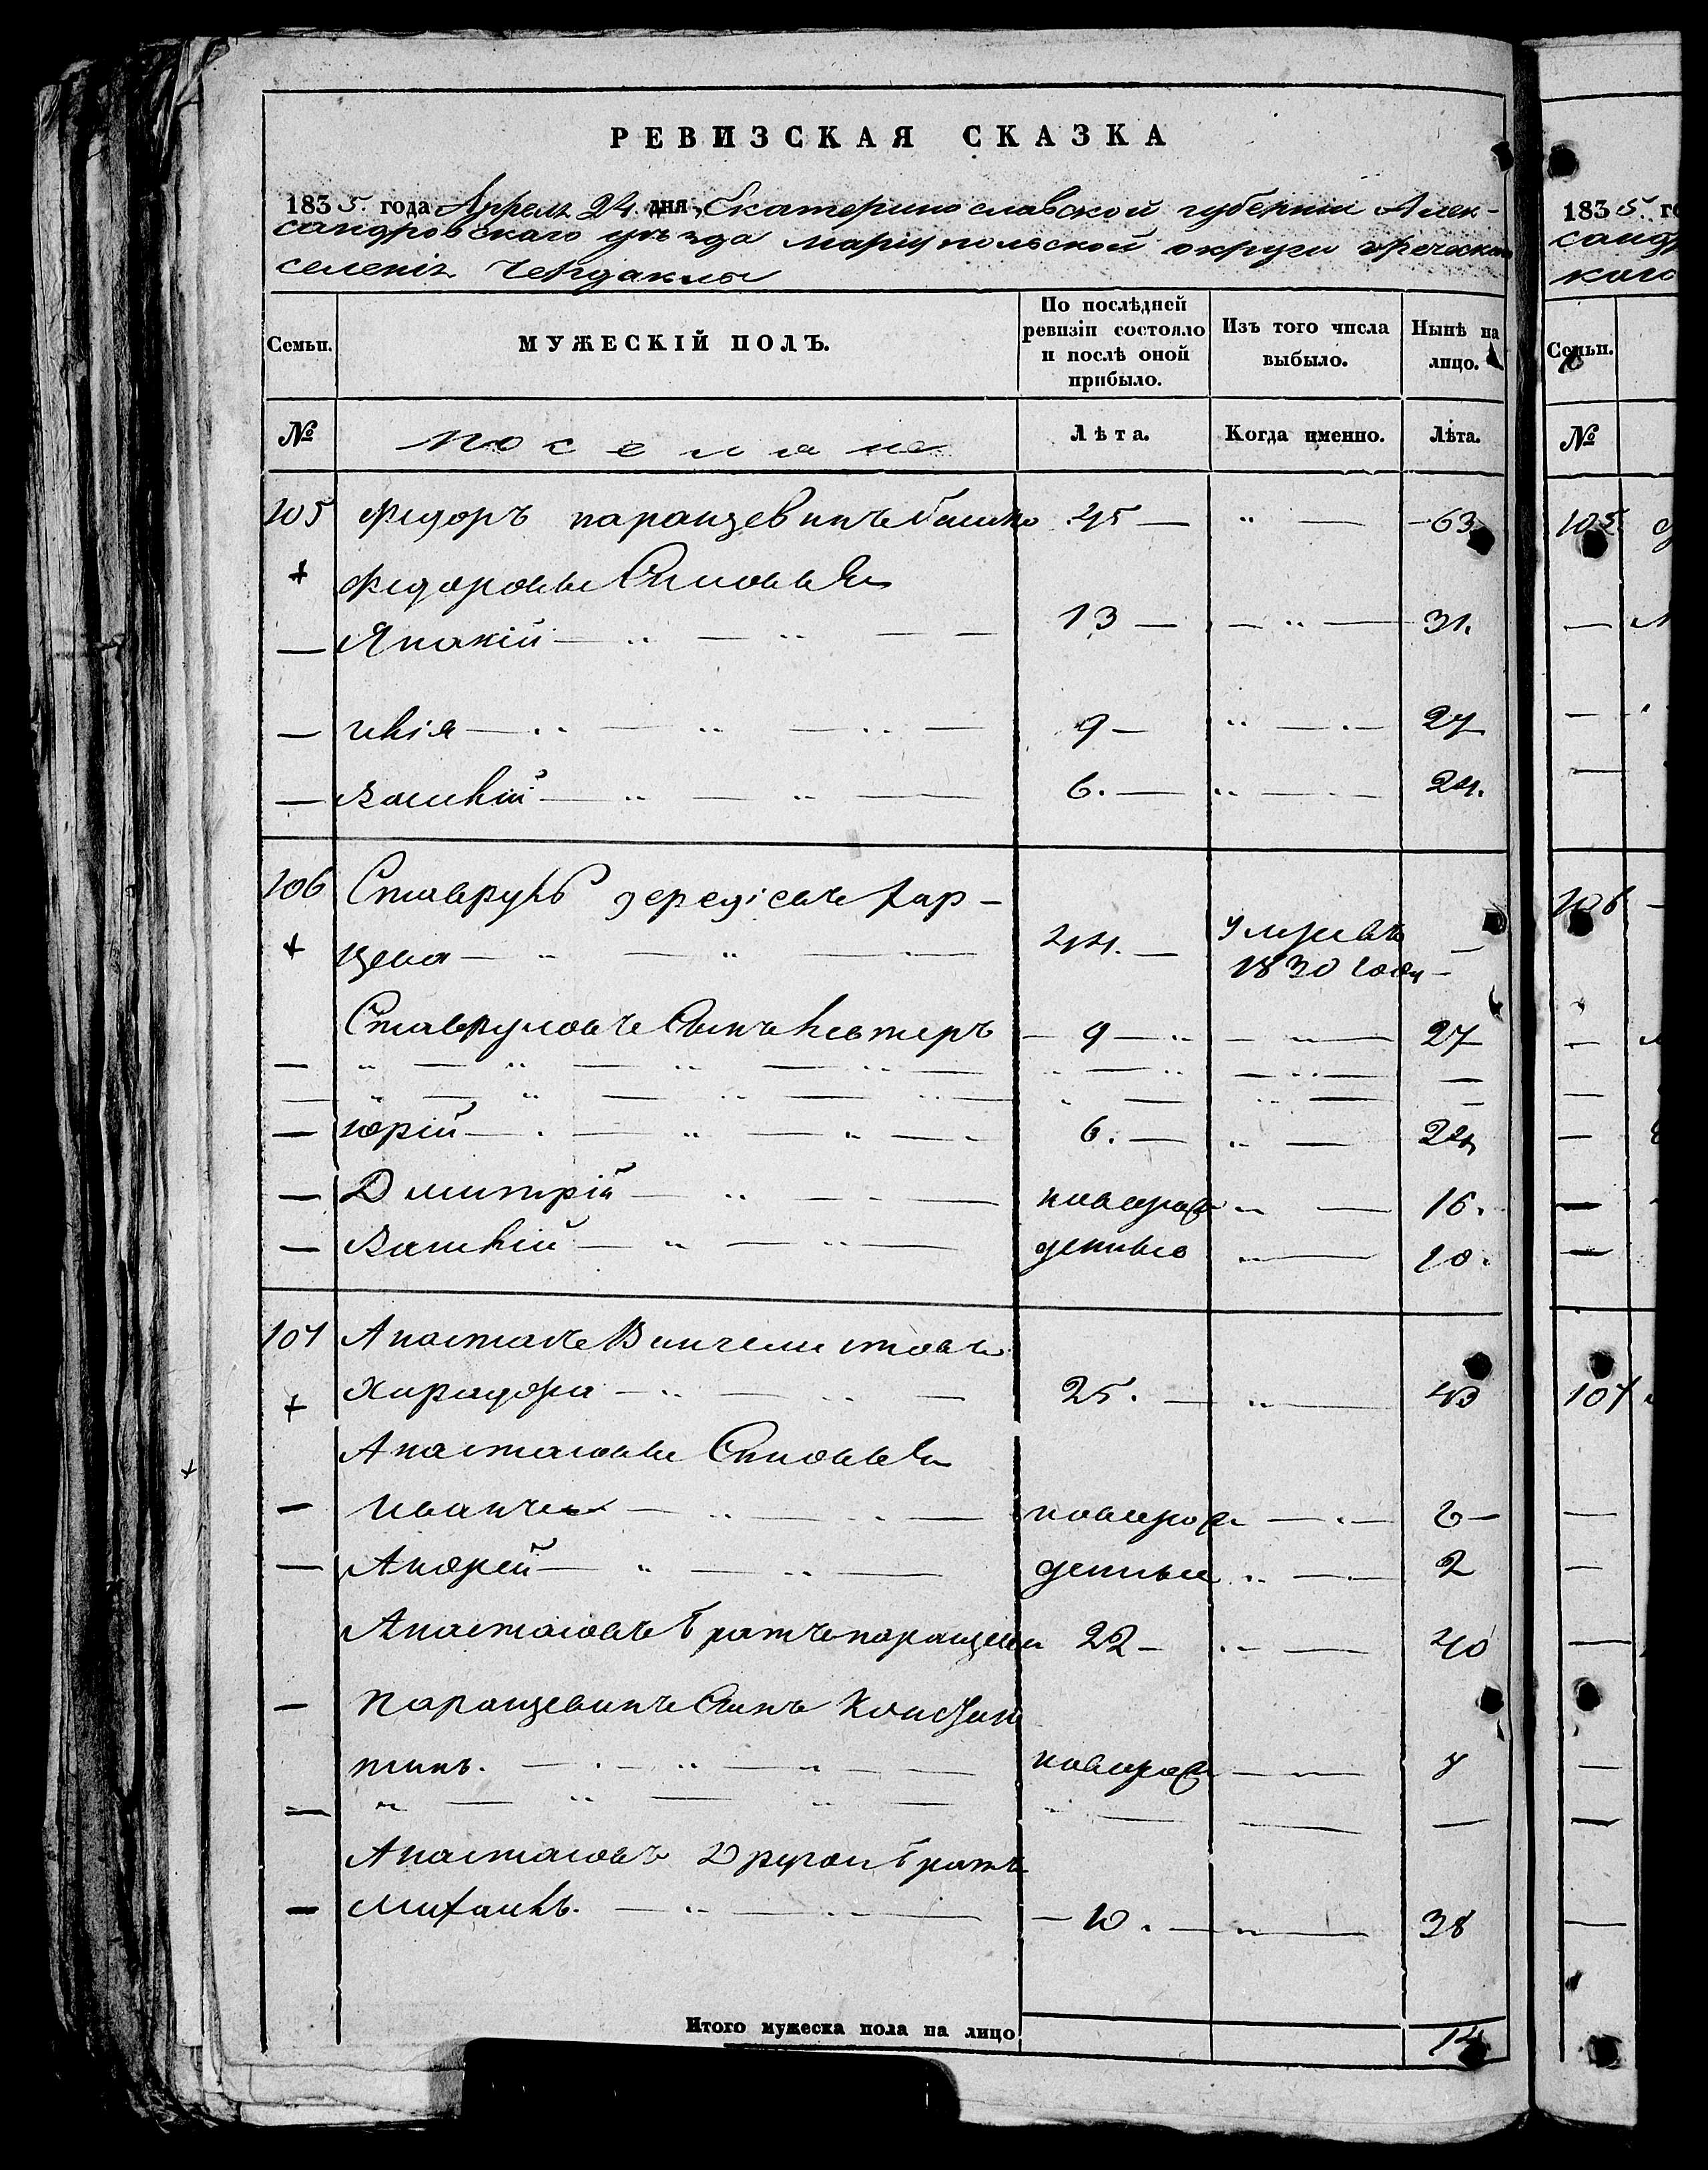 РЕВИЗСКАЯ СКАЗКА
1835. года Апреля 24 дня, Екатеринославской губернии Алек-
сандровскаго уѣзда маріупольской округи греческаго
селенія Чердаклы
Семьи.
МУЖЕСКІЙ ПОЛЪ.
По послѣдней ревизіи состояло и послѣ оной прибыло.
Изъ того числа выбыло.
Нынѣ на лицо.
№
поселяне
Лѣта.
Когда именно.
Лѣта.
105 Федоръ паранцевинъ 45 — „ — 63
+ Федоровы Сыновья
— 13 — — „ — 31.
— илія — 9 — „ — 27
— Василій — 6. — „ — 24.
106 Ставрулъ хар-
+ цева — 44. — умръ въ 1830 году —
Ставруловъ Сынъ — 9 — 27
— юрій — 6. — „ — 24
— Дмитрій — новорож „ — 16.
— Василій — денные „ — 10.
107 Анастасъ
+ 25. — „ — 43
Анастасовы Сыновья
— новорож — 6 —
— Андрей — денные „ — 2
Анастасовъ братъ 22 — „ — 40
— Паранцевинъ Сынъ Констан
тинъ. — новорож — 7
Анастасовъ другой братъ
— Михаилъ. — 38
Итого мужеска пола на лицо 14
1835. го
санд
каго
Семьи.
№
105
106
107